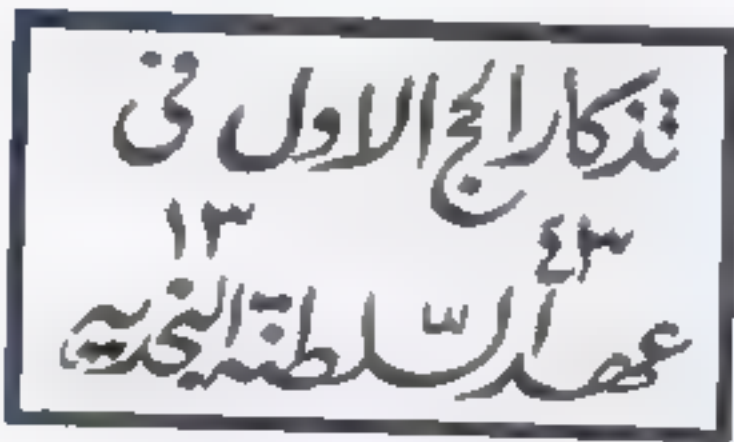 تذكار الحج الاول في
١٣ ٤٣
عهد السلطنة النجدية